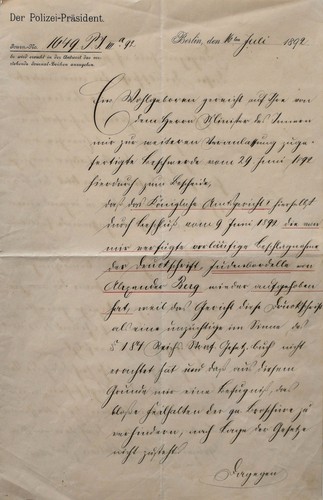 Der Polizei-Präsident.
Journ.-No. 1649 P. J. III a 92.
Es wird ersucht in der Antwort das vor-
stehende Journal-Zeichen anzugeben.
Berlin, den 16ten Juli 1892
Ew. Wohlgeboren gereicht auf Ihre von
dem Herrn Minister des Innern
mir zur weiteren Veranlassung zuge-
fertigte Beschwerde vom 29. Juni 1892
hierdurch zum Bescheide,
daß das Königliche Amtsgericht hierselbst
durch Beschluß vom 9. Juni 1892 die von
mir verfügte vorläufige Beschlagnahme
der Druckschrift, Judenbordelle von
Alexander Berg wieder aufgehoben
hat, weil das Gericht diese Druckschrift
als eine unzüchtige im Sinne des
§ 184 Reichs-Straf-Gesetz-buch nicht
erachtet hat und daß aus diesem
Grunde mir eine Befugniß, das
bloße Feilhalten der qu. Broschüre zu
verhindern, nach Lage der Gesetze
nicht zusteht.
Dagegen